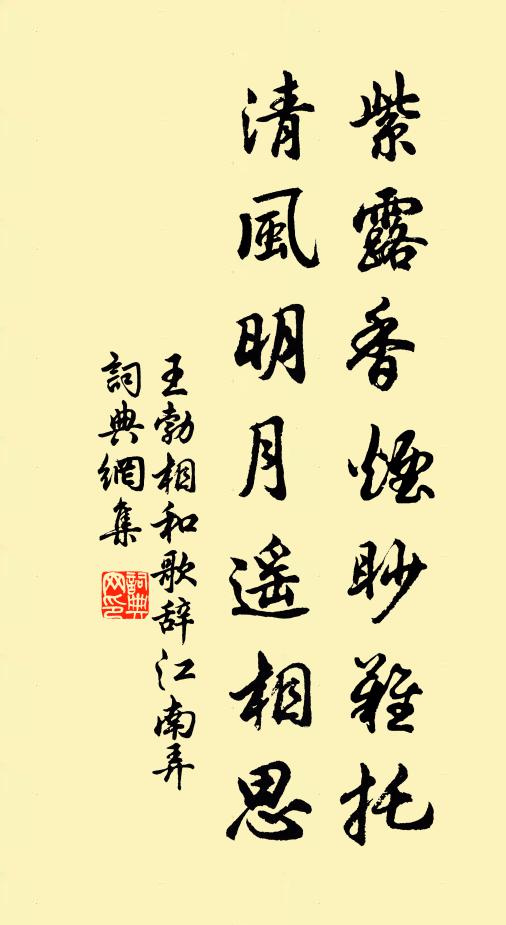 紫露香煙眇難托
清風明月遥相思
王勃相和歌辞江南弄
詞典網集
詞典网印